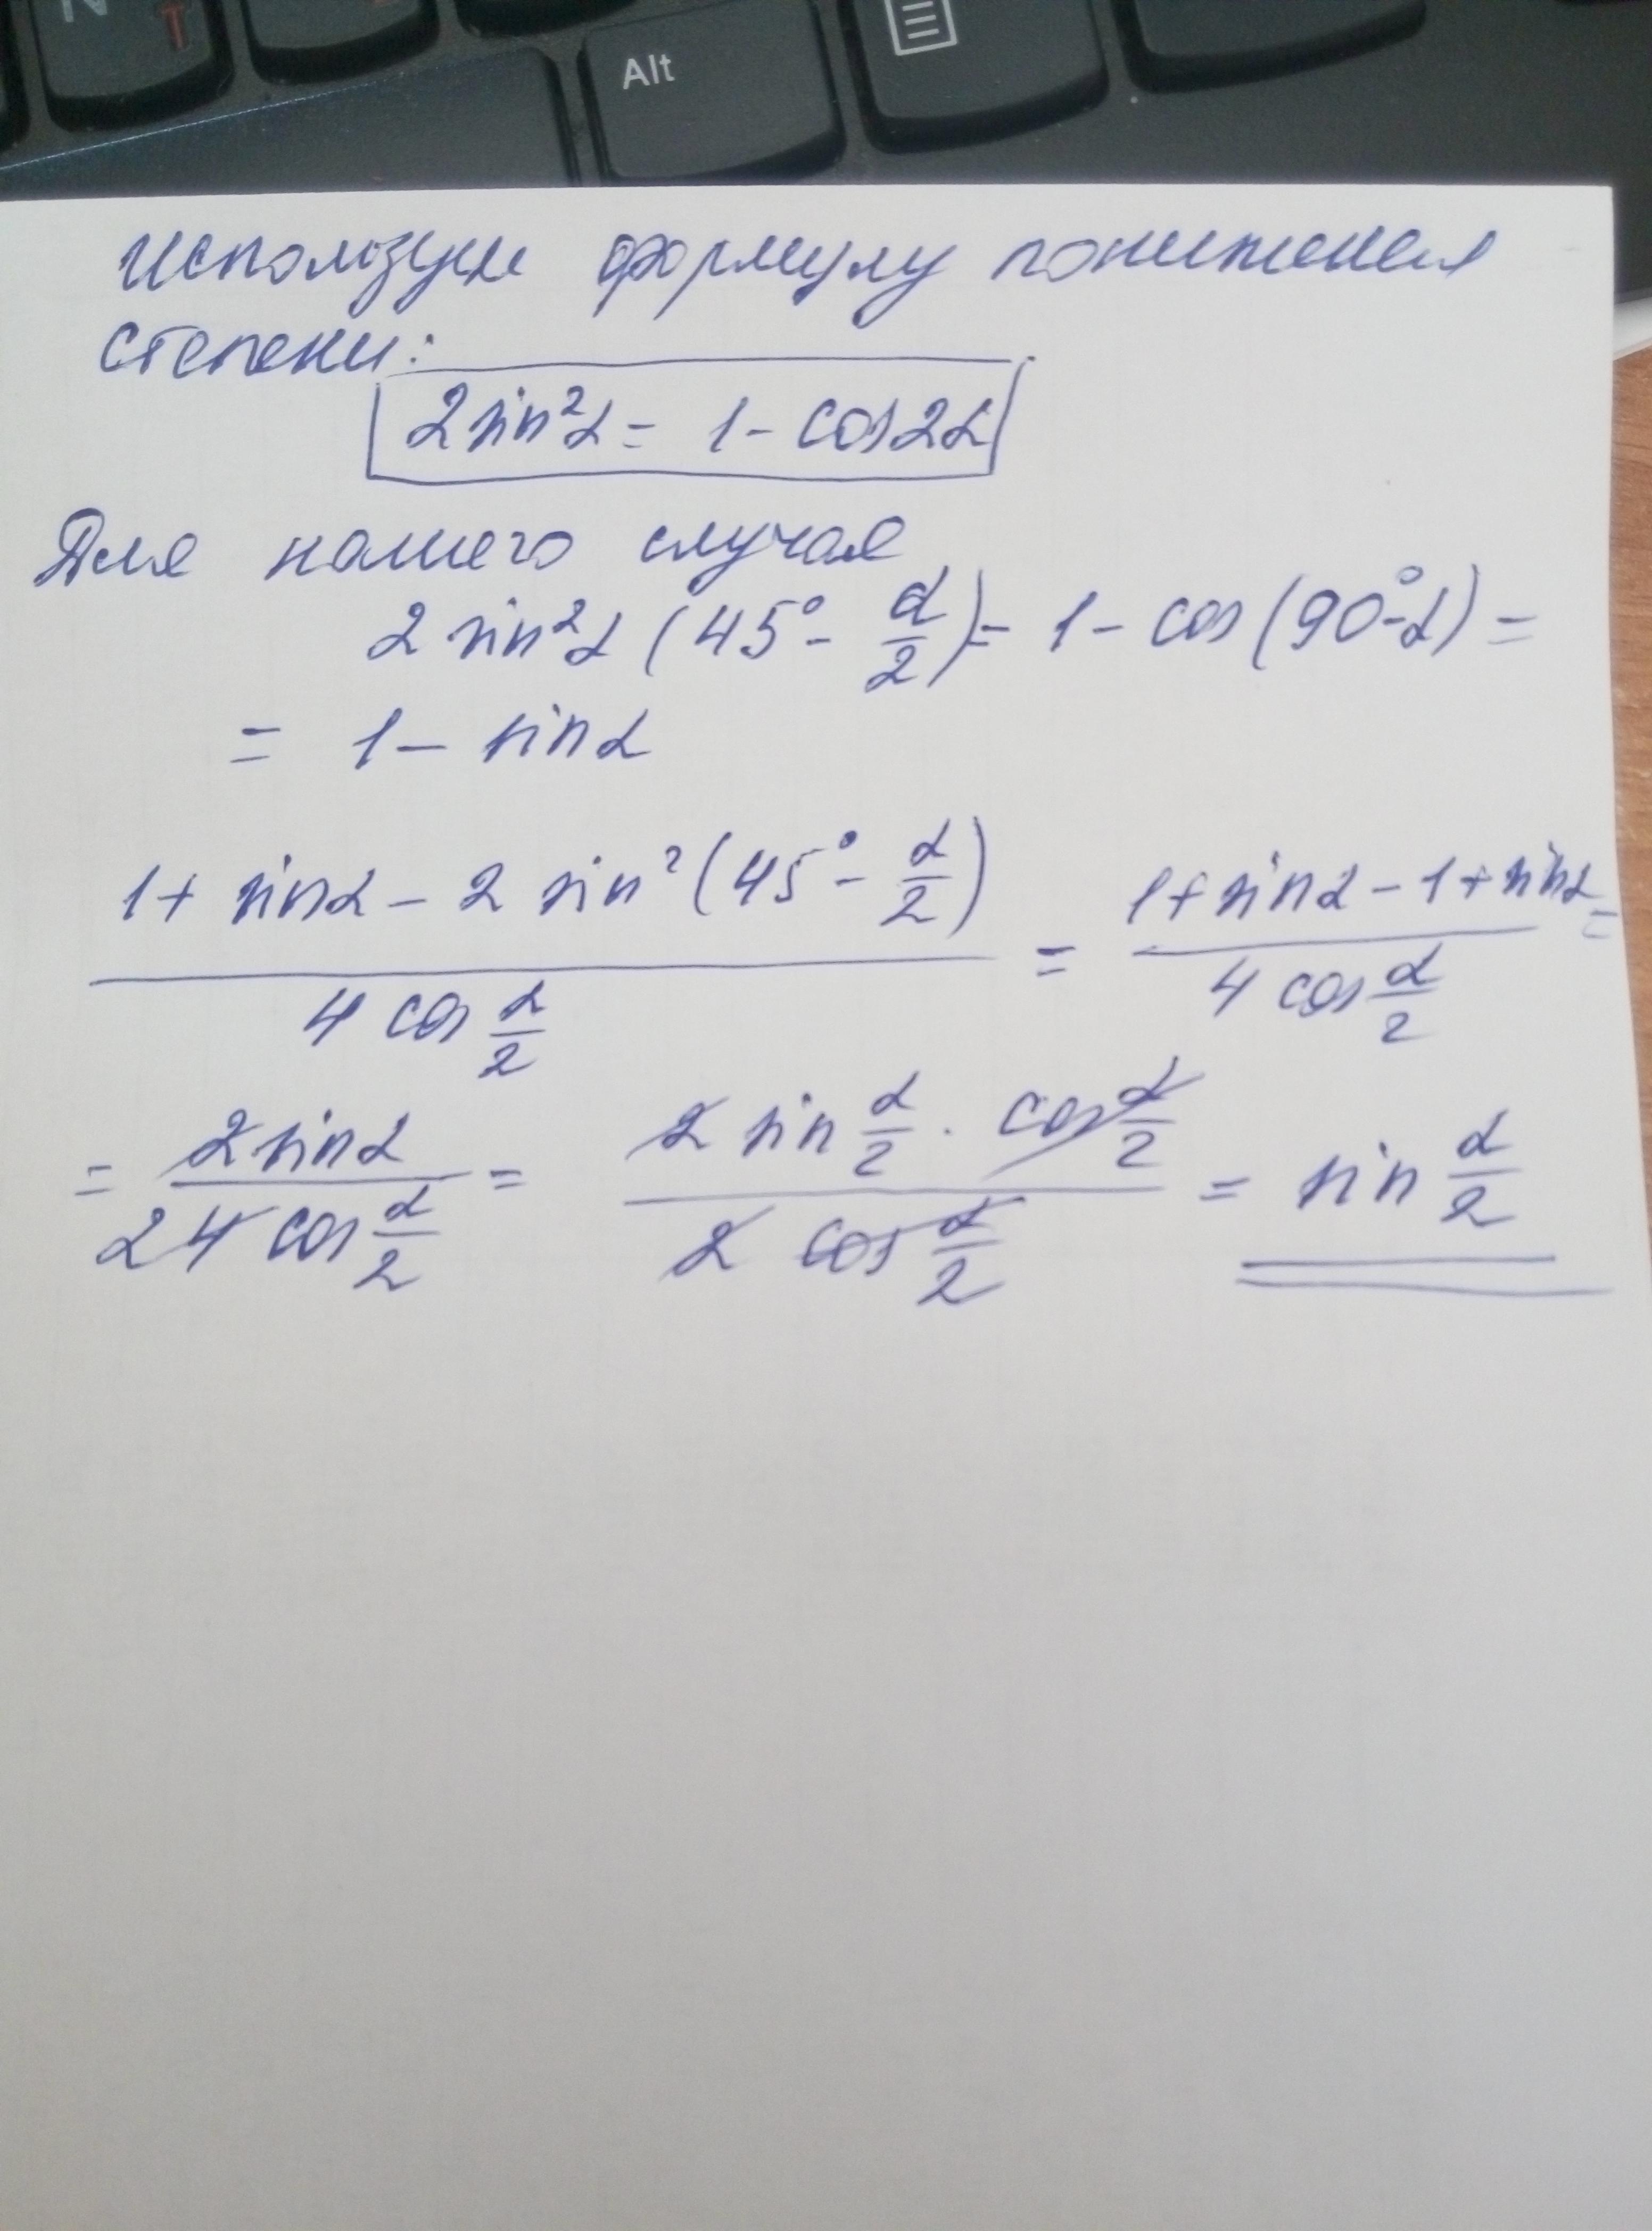 N T
Alt
используем формулу понижения
степени:
2sin²α = 1 - cos2α
Для нашего случая
2 sin²α (45° - α/2) = 1 - cos (90° - α) =
= 1 - sinα
(1 + sinα - 2 sin² (45° - α/2)) / (4 cos α/2) = (1 + sinα - 1 + sinα) / (4 cos α/2) =
= 2 sinα / (2 4 cos α/2) = (2 sin α/2 · cos α/2) / (2 cos α/2) = sin α/2